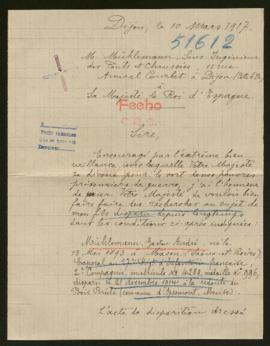 Dijon, le 10 Mars 1917
51612
M. Mühlemann, Sous Ingénieur
des Ponts et Chaussées, rue
Amiral Courbet à Dijon
à
Sa Majesté le Roi d'Espagne
Fecho
Sire,
Encouragé par l'extrême bien
veillance avec laquelle Votre Majesté
pour le sort des pauvres
prisonniers de guerre, j'ai l'honneur
de prier Votre Majesté de vouloir bien
faire faire des recherches au sujet de
mon fils disparu depuis longtemps
dans les conditions ci-après indiquées
Mühlemann, Gaston André, né le
13 Mai 1893 à Macon (Saône-et-Loire)
Caporal au d'Infanterie française,
2e Compagnie, matricule
disparu le 21 décembre 1914 à la redoute du
Bois Brulé (commune d'Apremont, Meuse).
L'acte de disparition dressé